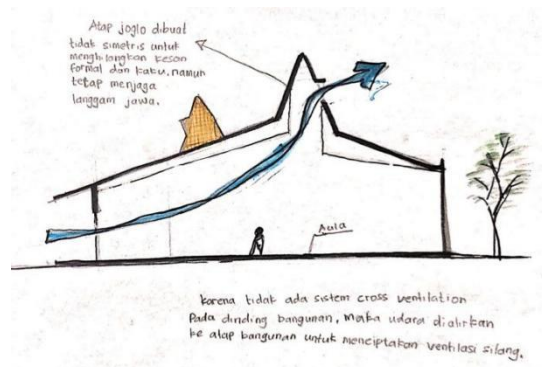 Atap joglo dibuat
tidak simetris untuk
menghilangkan kesan
formal dan kaku, namun
tetap menjaga
langgam jawa.
Aula
karena tidak ada sistem cross ventilation
Pada dinding bangunan, maka udara dialirkan
ke atap bangunan untuk menciptakan ventilasi silang.